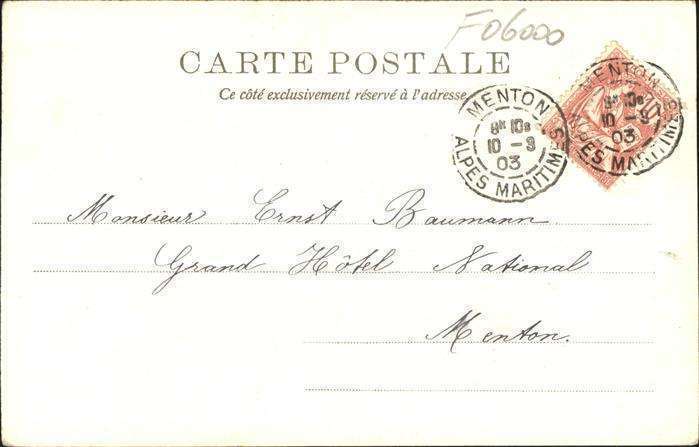 F06000
CARTE POSTALE
Ce côté exclusivement réservé à l'adresse
MENTON
8ᴴ 10ˢ
10 - 3
03
ALPES MARITIMES
MENTON
8ᴴ 10ˢ
10 - 3
03
ALPES MARITIMES
10
Monsieur Ernst Baumann
Grand Hôtel National
Menton.